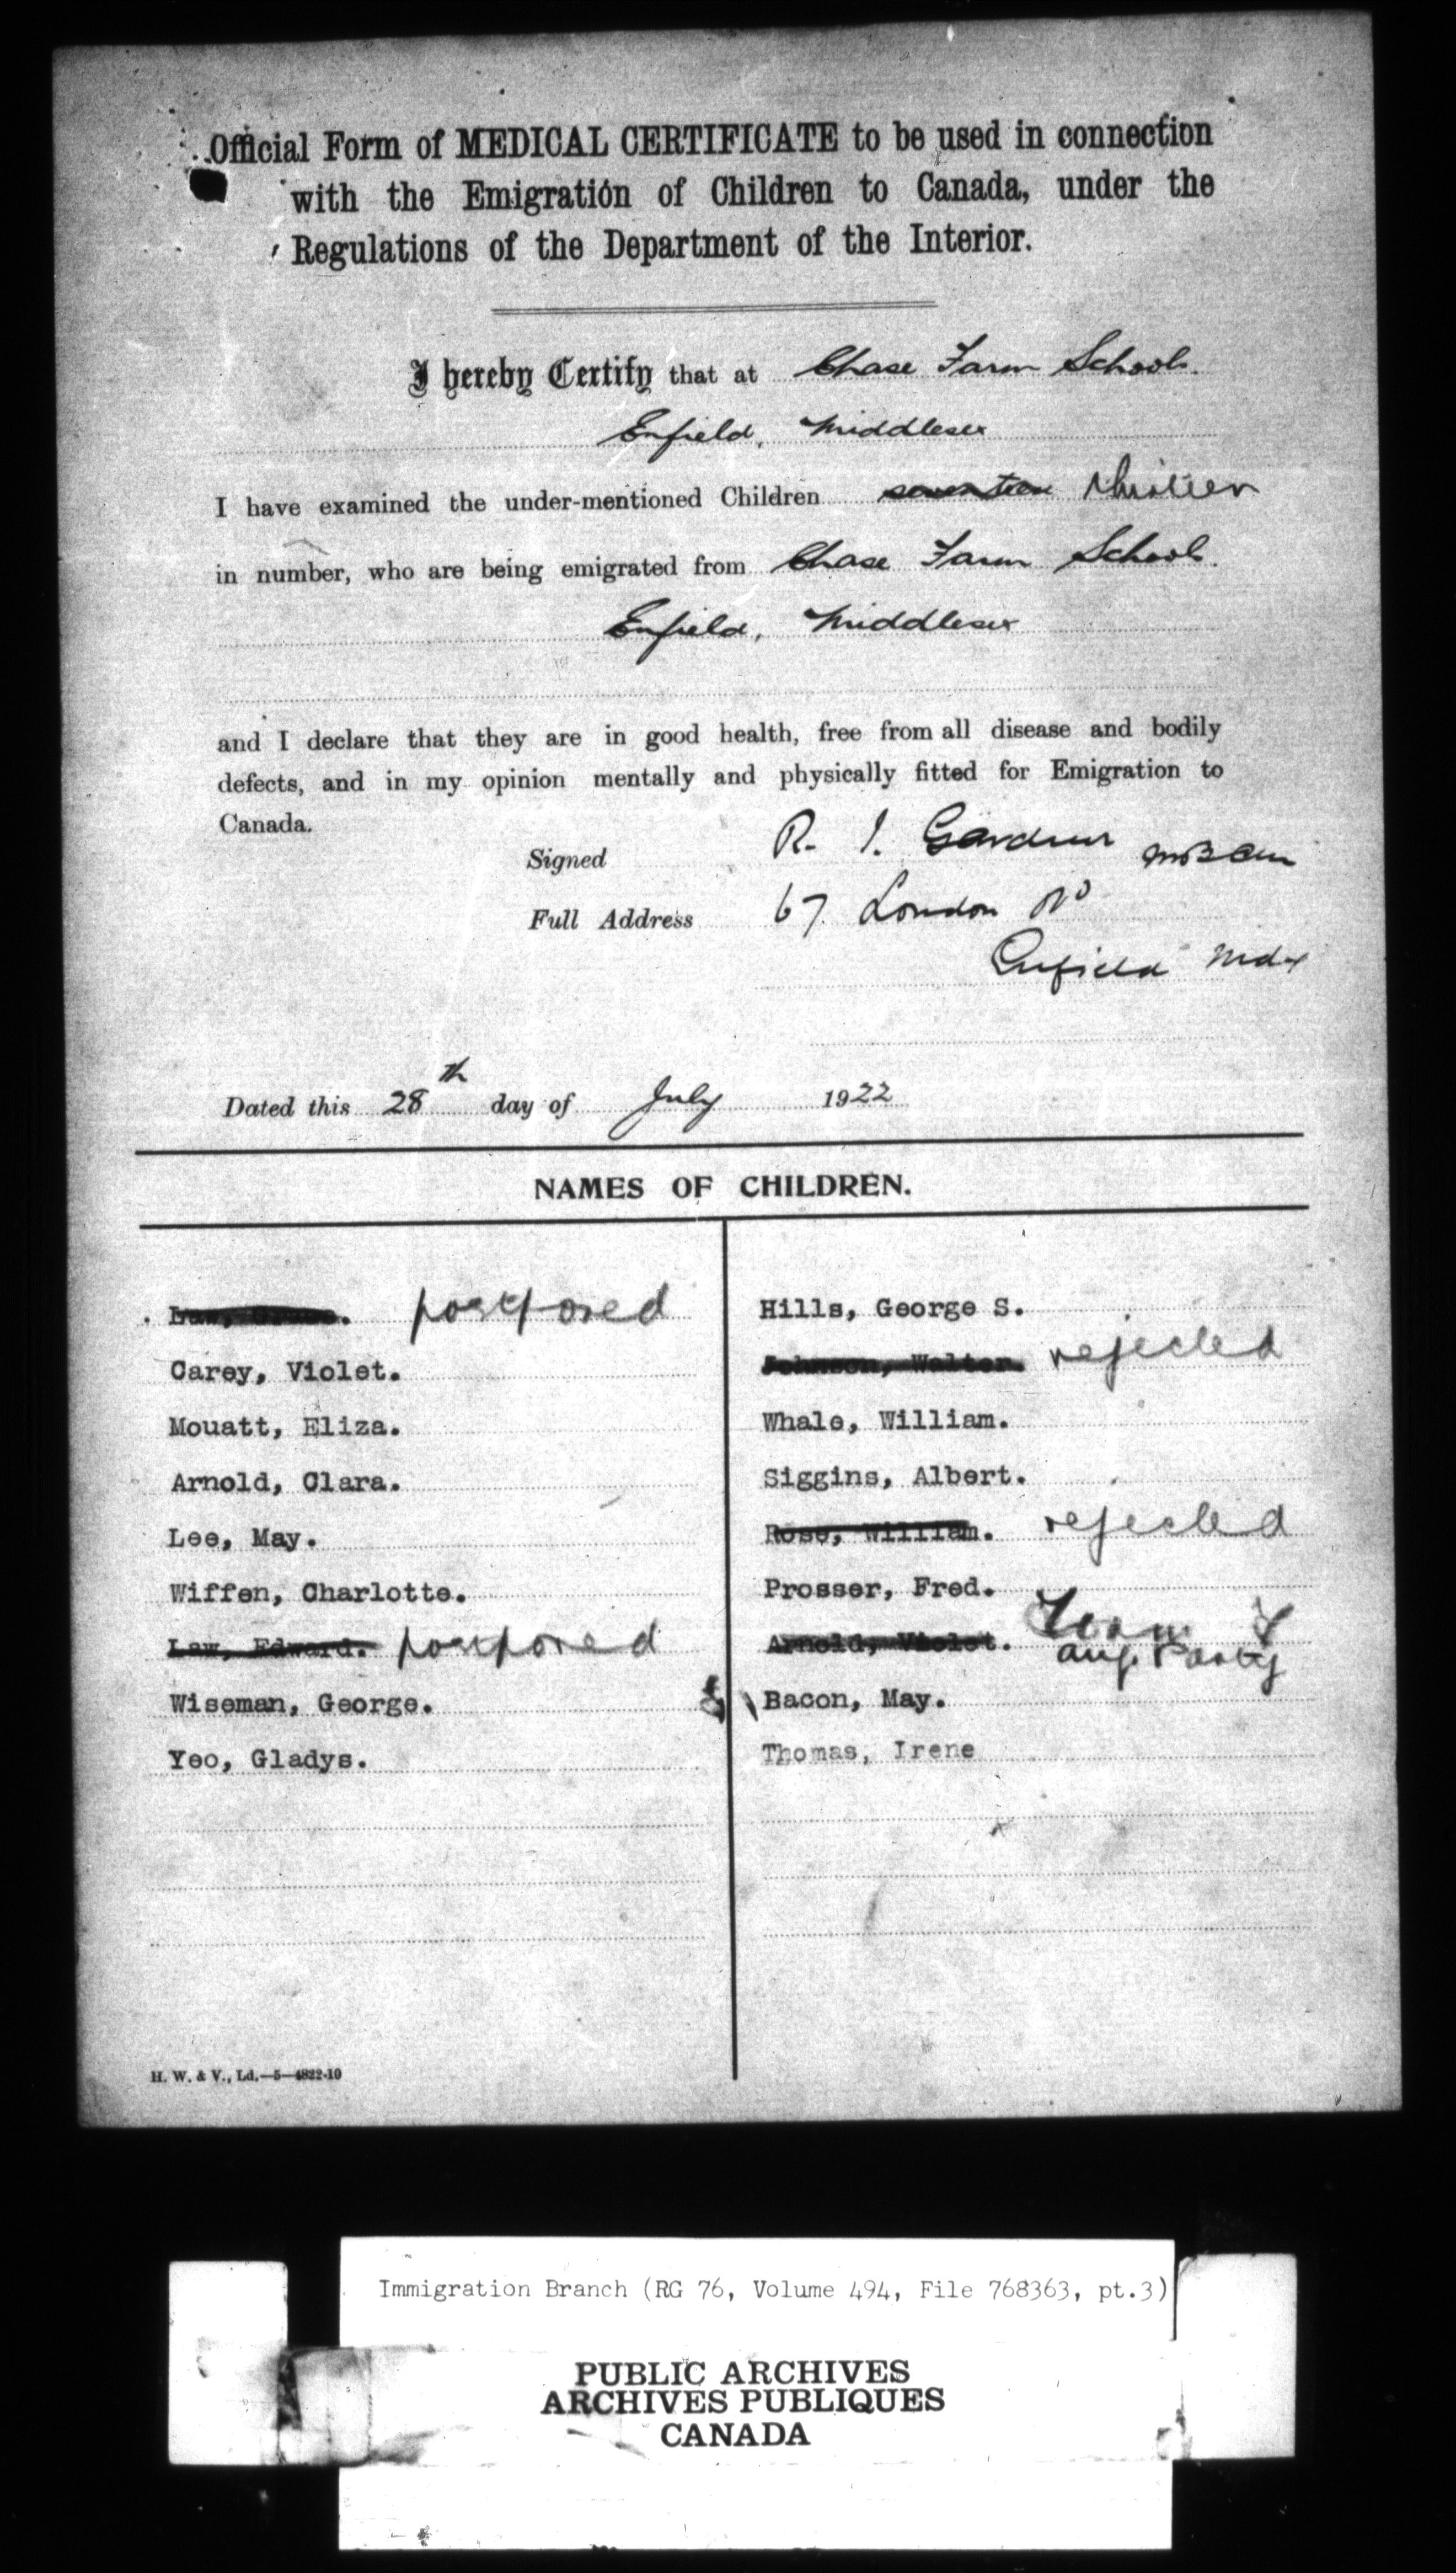 Official Form of MEDICAL CERTIFICATE to be used in connection
with the Emigration of Children to Canada, under the
Regulations of the Department of the Interior.
I hereby Certify that at Chase Farm Schools.
Enfield, Middlesex
I have examined the under-mentioned Children seventeen thirteen
in number, who are being emigrated from Chase Farm Schools.
Enfield, Middlesex
and I declare that they are in good health, free from all disease and bodily
defects, and in my opinion mentally and physically fitted for Emigration to
Canada.
Signed R. I. Gardner
Full Address 67 London Rd
Enfield Mdx
Dated this 28th day of July 1922
NAMES OF CHILDREN.
Law, Grace. postponed
Carey, Violet.
Mouatt, Eliza.
Arnold, Clara.
Lee, May.
Wiffen, Charlotte.
Law, Edward. postponed
Wiseman, George.
Yeo, Gladys.
Hills, George S.
Johnson, Walter. rejected
Whale, William.
Siggins, Albert.
Rose, William. rejected
Prosser, Fred.
Arnold, Violet.
Aug. Party
Bacon, May.
Thomas, Irene
H. W. & V., Ld.—5—4822-10
Immigration Branch (RG 76, Volume 494, File 768363, pt.3)
PUBLIC ARCHIVES
ARCHIVES PUBLIQUES
CANADA